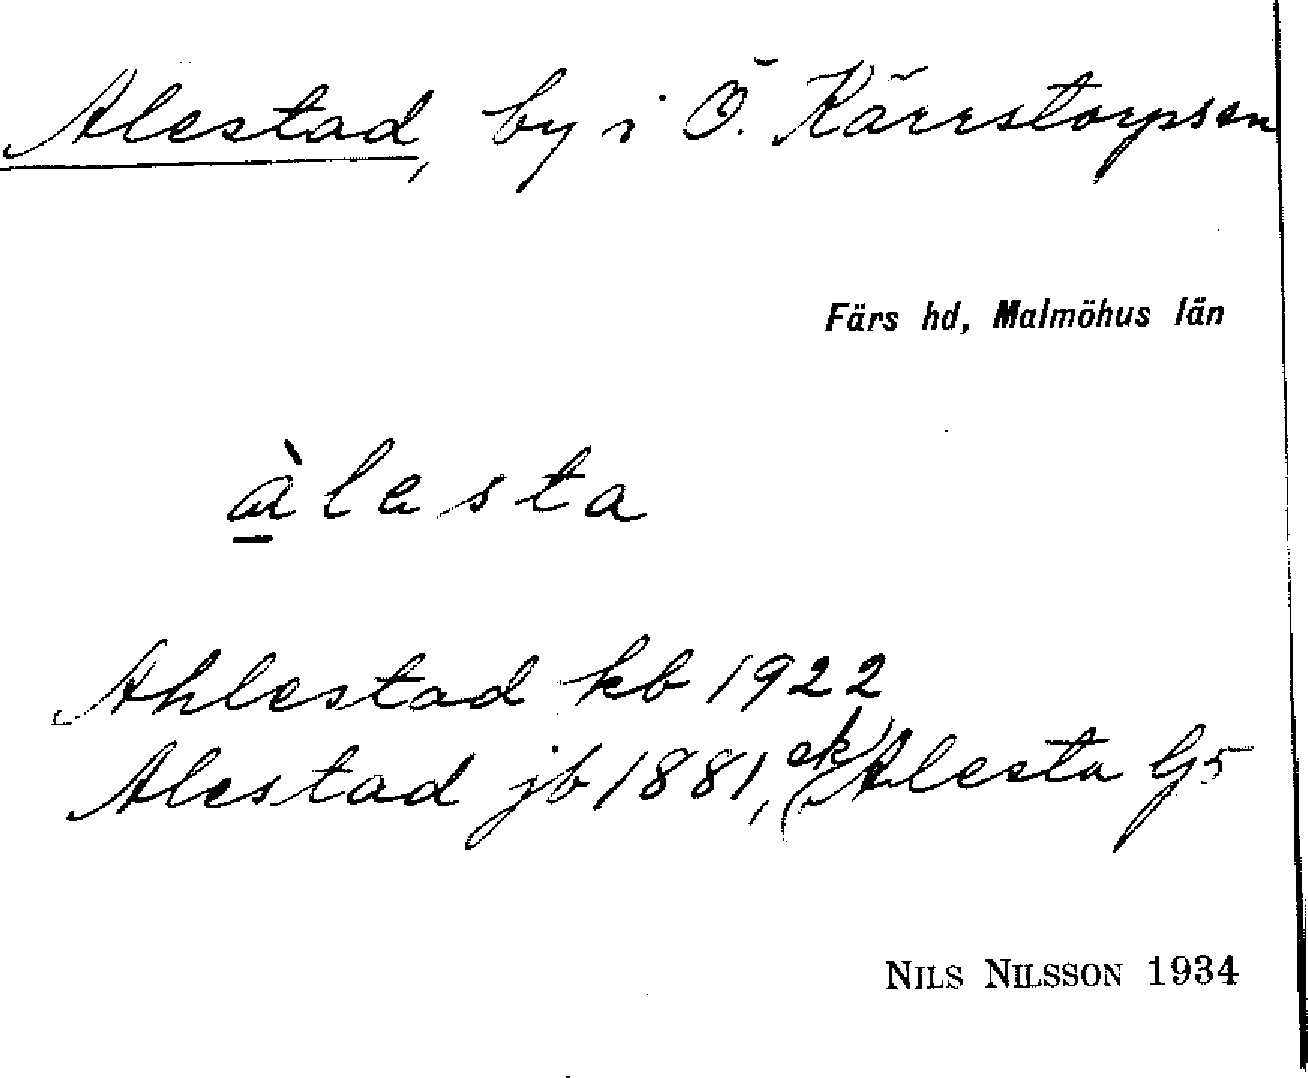 Alestad, by i Ö. Kärrstorpsen
Färs hd, Malmöhus län
àlesta
Ahlestad kb 1922
Alestad jb 1881, ek Alesta G5
NILS NILSSON 1934